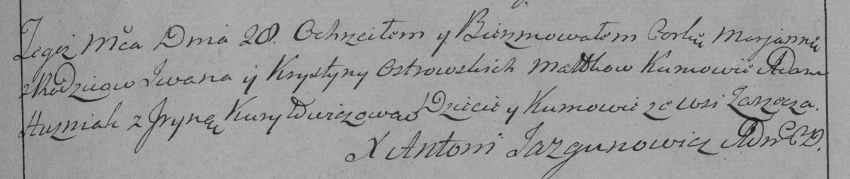 Tegoż Mca Dnia 28. Ochrzciłem y Bierzmowałem Corkę Marjannę
z Rodzicow Iwana y Krystyny Ostrowskich Małżkow Kumowie Adam
Huzniak z Iryną Kuryłowiczową Dziecie y Kumowie ze wsi Zarzecza.
X Antoni Jazgunowicz